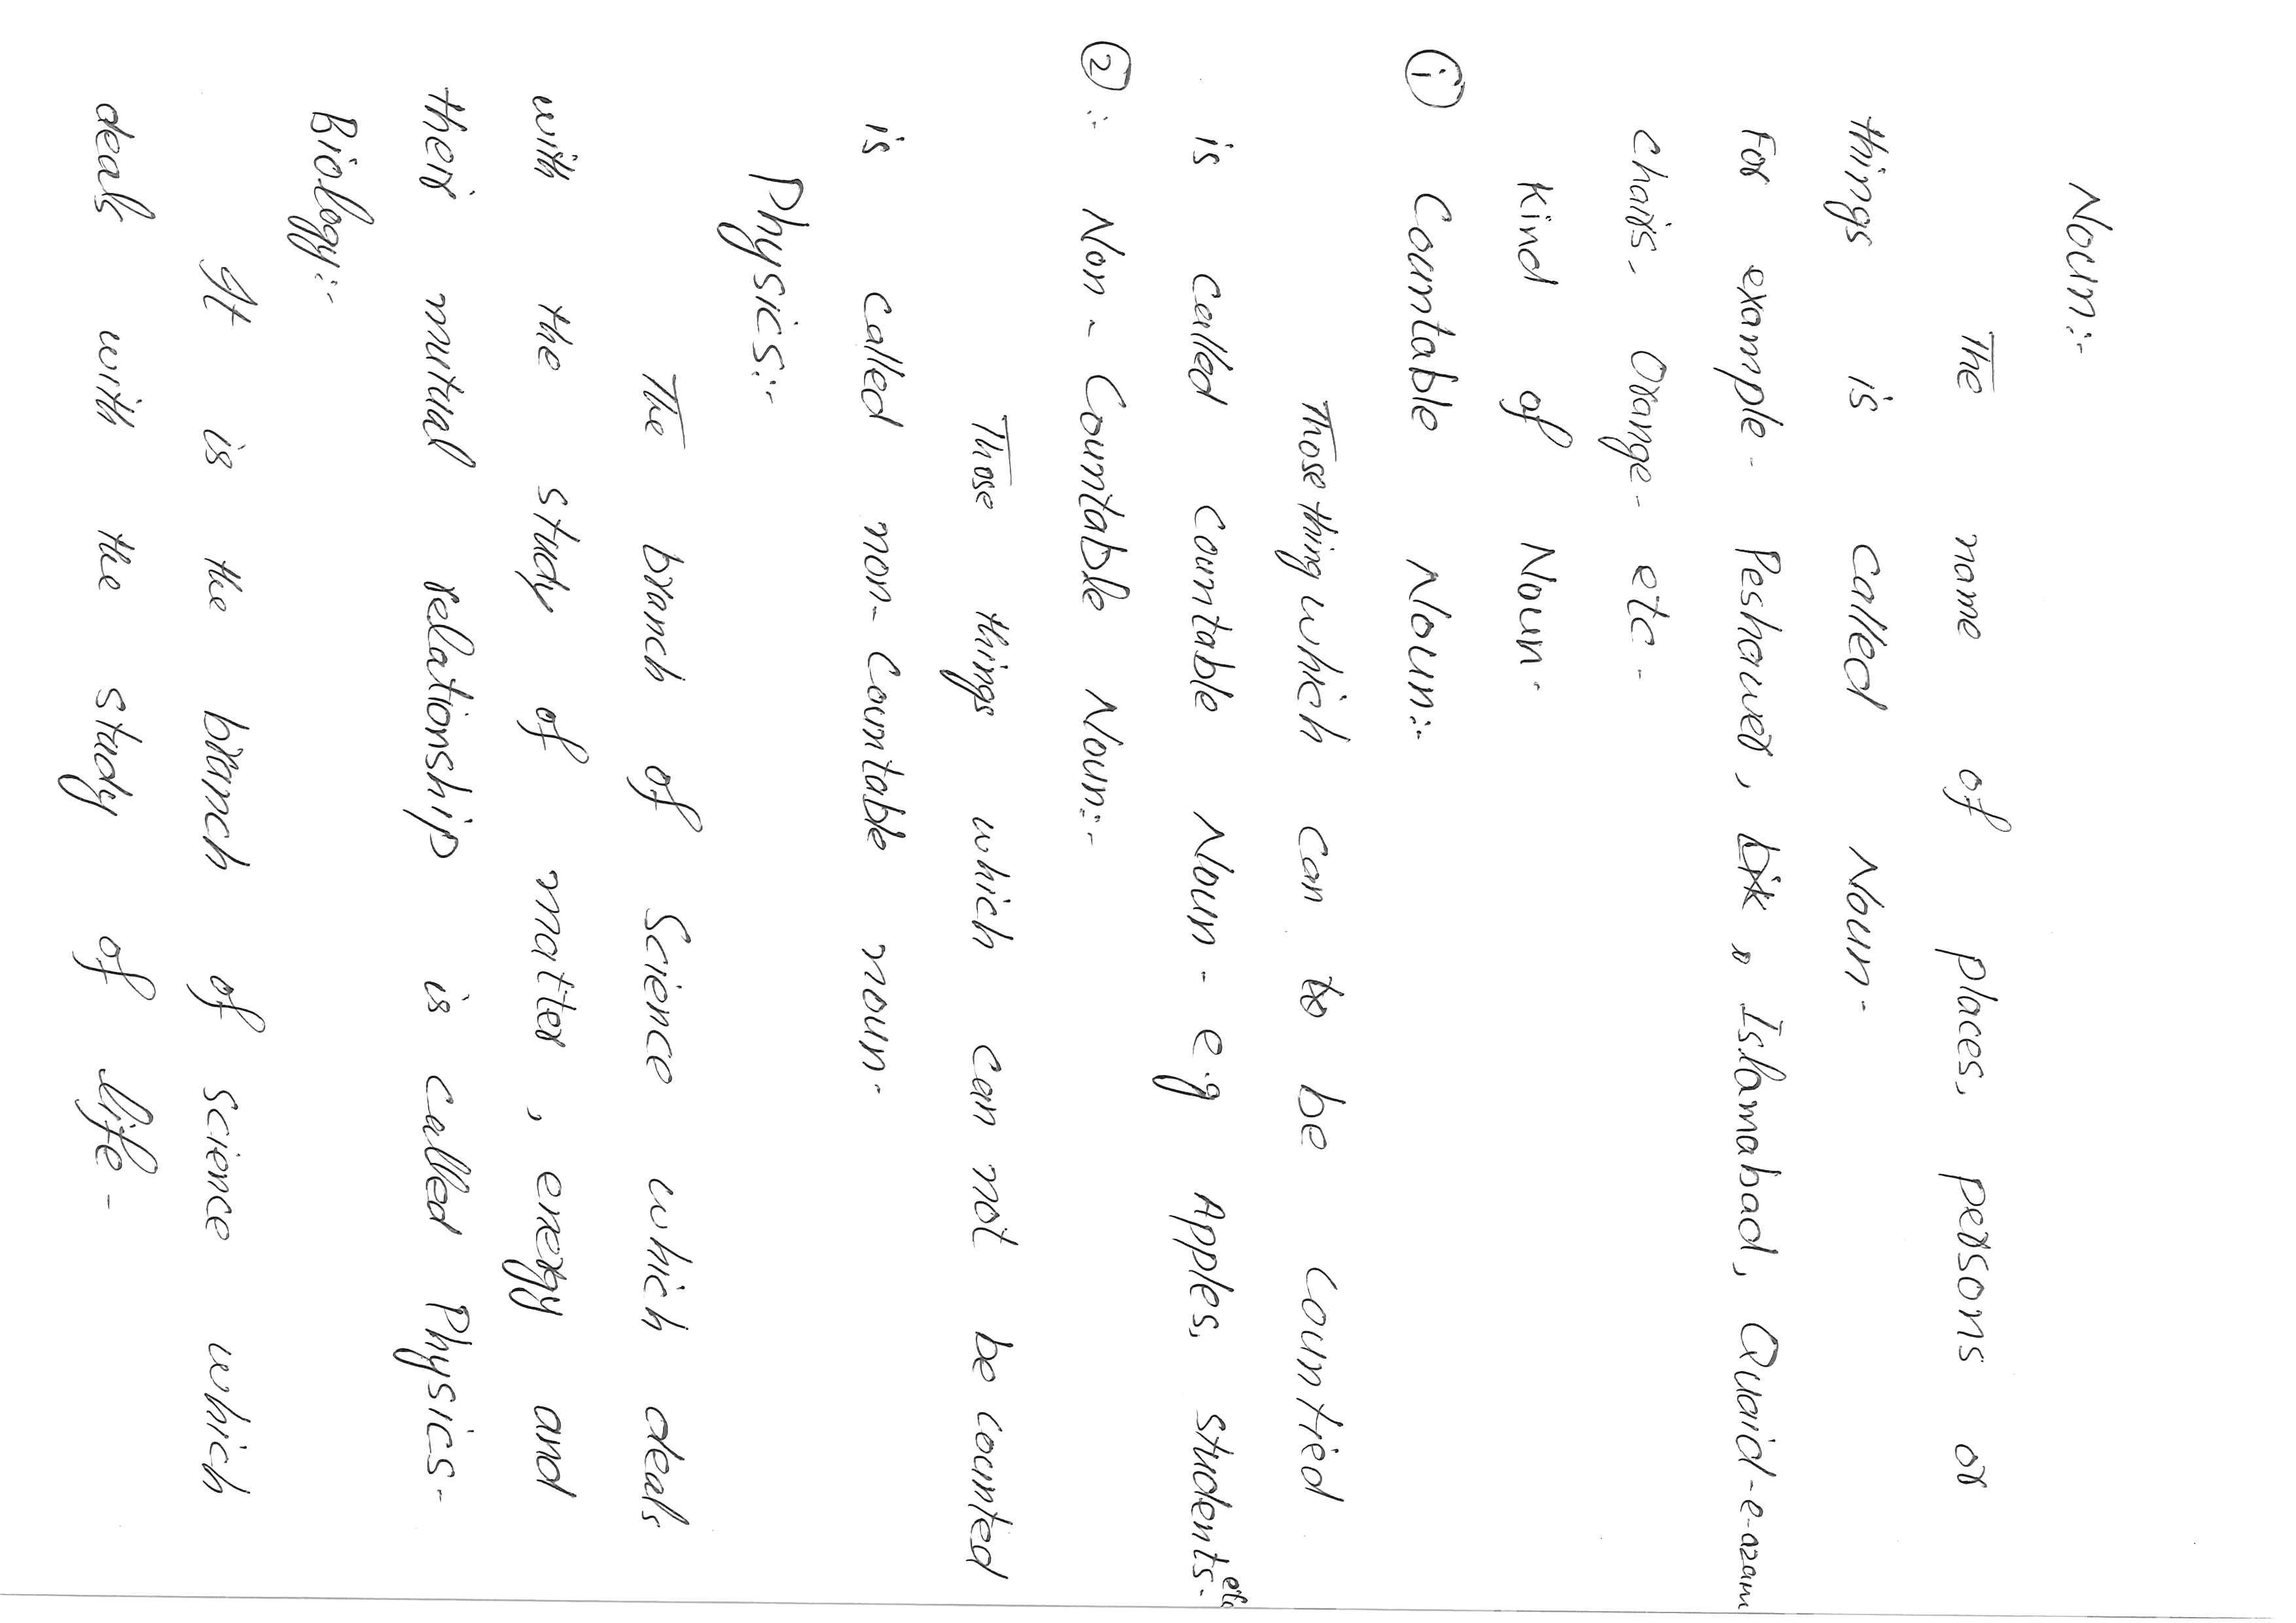 Noun:-
The name of places, persons or
things is called Noun-
For example- Peshawer, Islamabad, Quaid-e-azam
Chairs, Orange- etc-
Kind of Noun-
① Countable Noun:-
Those thing which can to be countied
is called countable Noun- e.g Apples, students- etc
②:- Non-Countable Noun:-
Those things which can not be counted
is called non-Countable noun-
Physics:-
The branch of Science which deals
with the study of matter, energy and
their mutual relationship is called Physics-
Biology:-
It is the branch of science which
deals with the study of life-